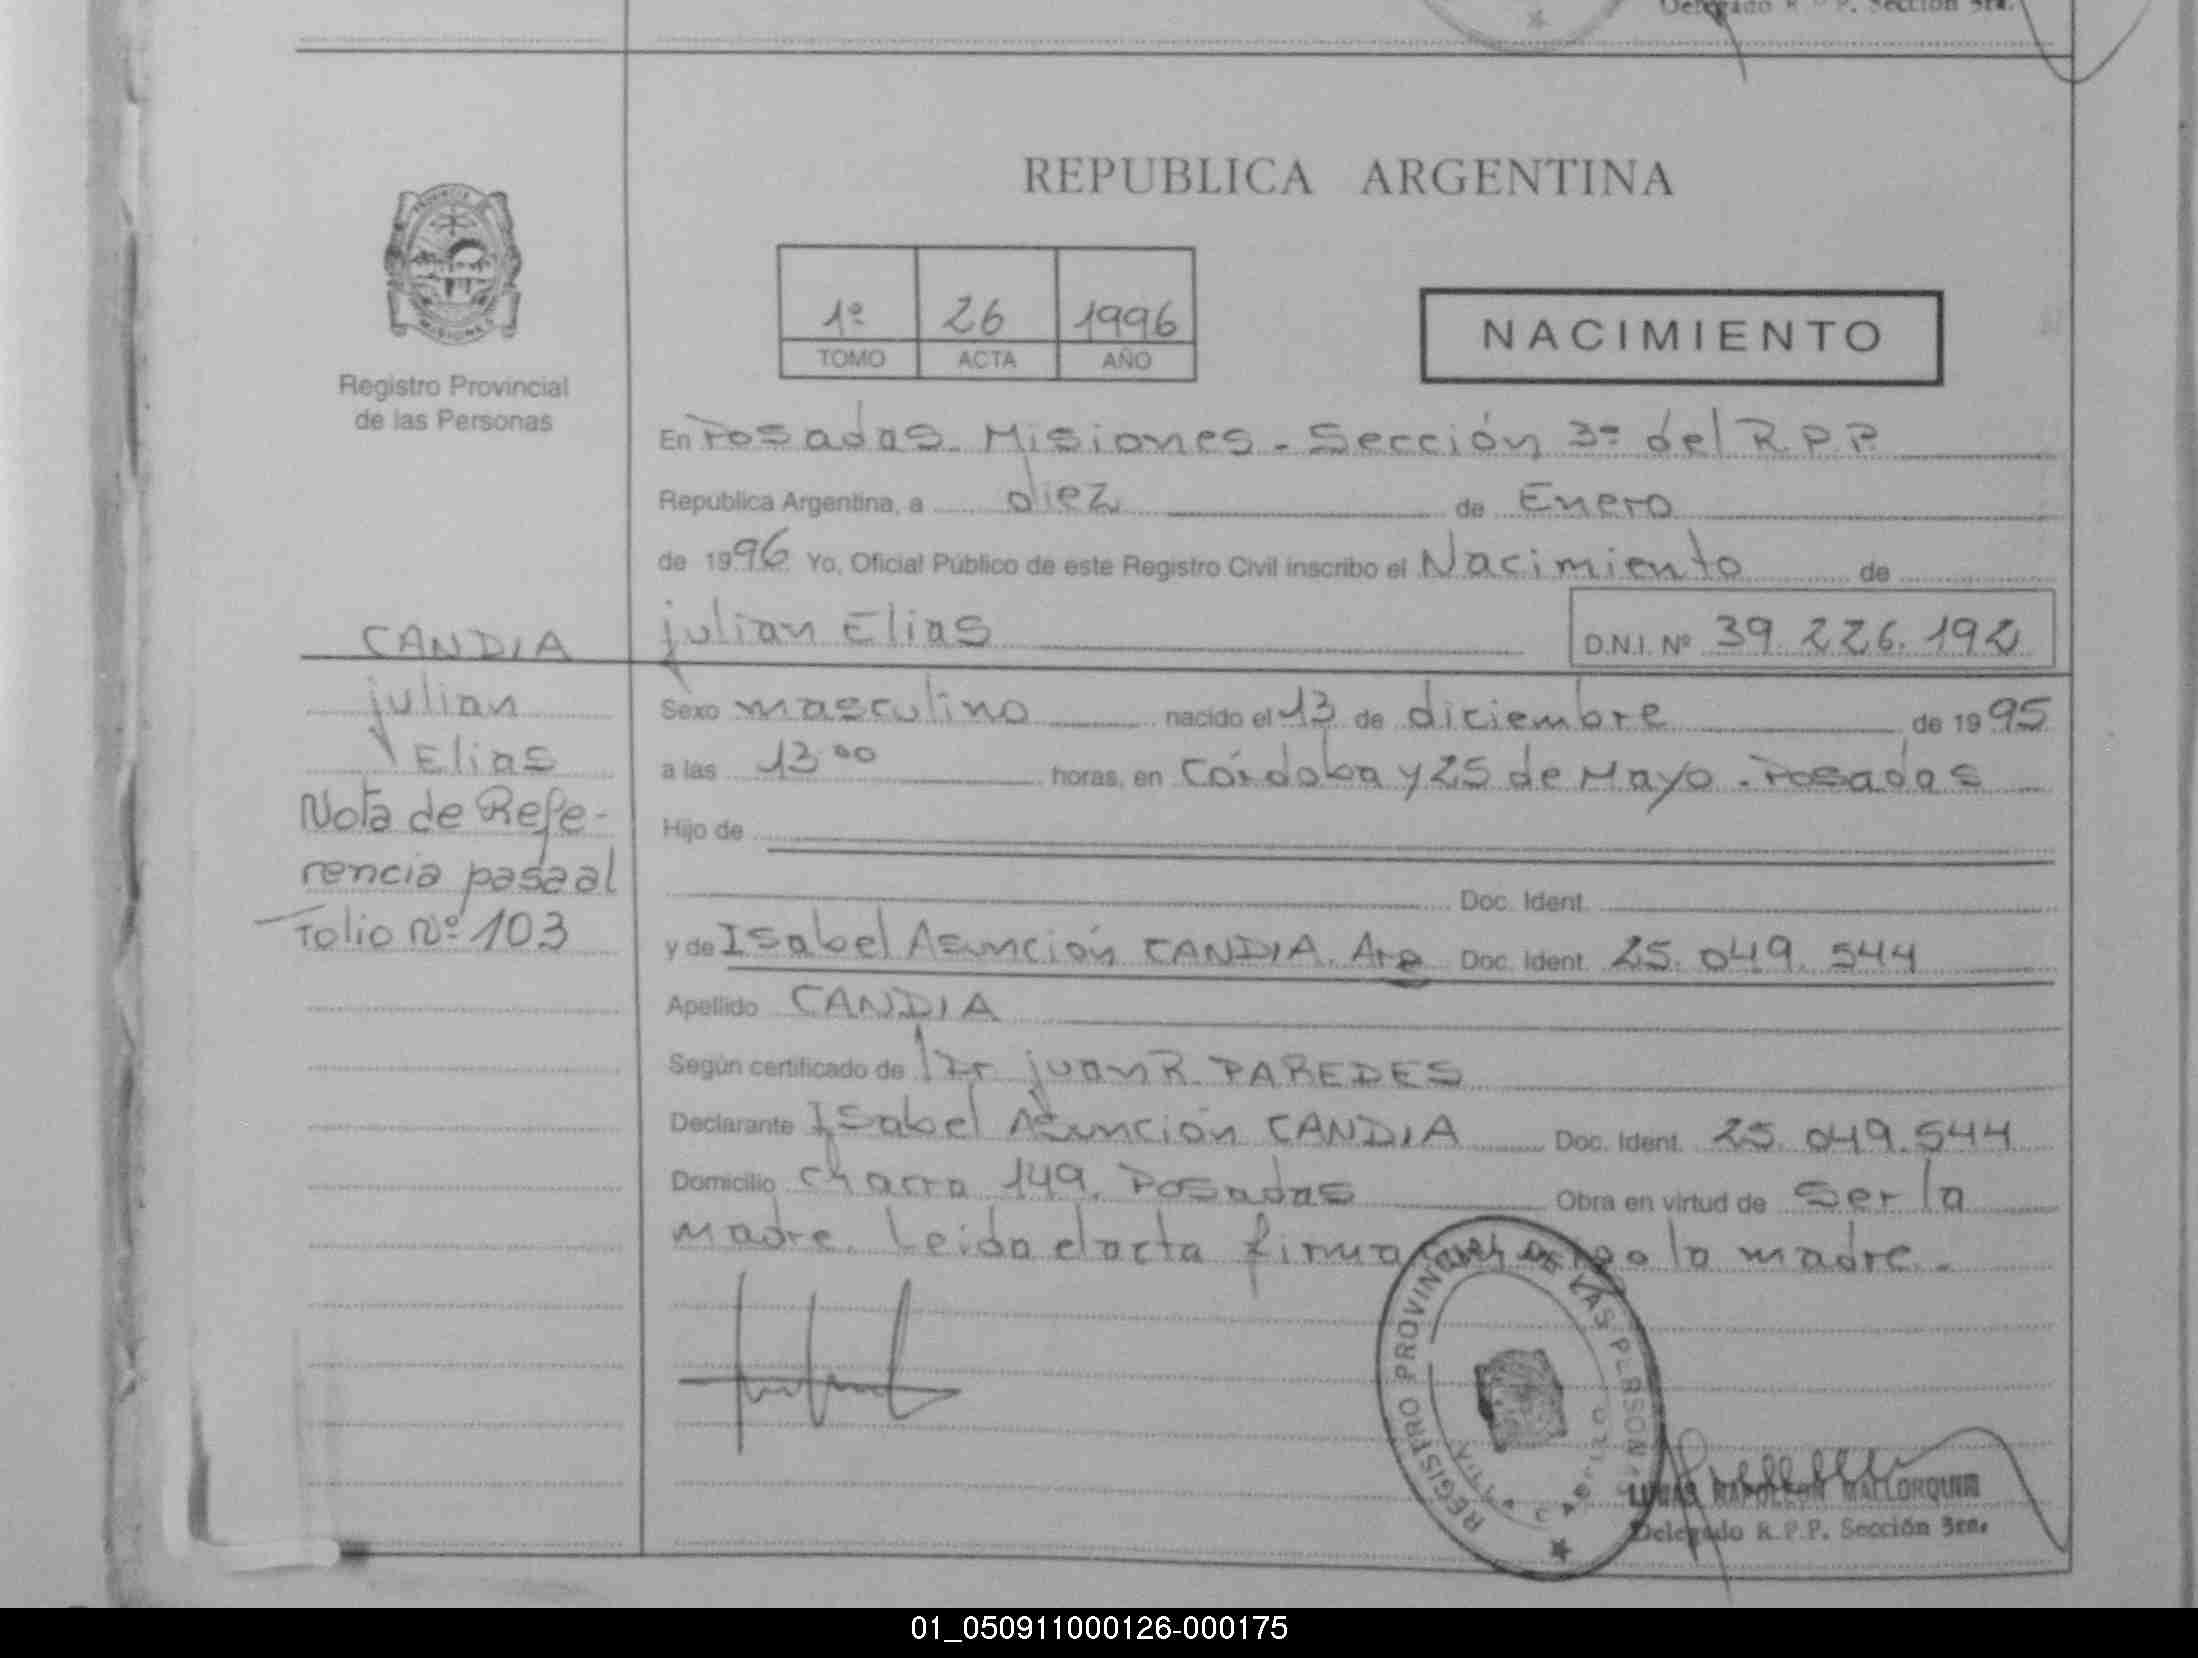 Delegado R.P.P. Sección 3ra.
REPUBLICA ARGENTINA
PROVINCIA
MISIONES
Registro Provincial
de las Personas
1º 26 1996
TOMO ACTA AÑO
NACIMIENTO
En Posadas. Misiones - Sección 3ª del R.P.P.
Republica Argentina, a diez de Enero
de 1996 Yo, Oficial Público de este Registro Civil inscribo el Nacimiento de
julian Elias D.N.I. Nº 39.226.192
CANDIA
julian
Elias
Nota de Refe-
rencia pasa al
Folio Nº 103
Sexo masculino nacido el 13 de diciembre de 1995
a las 13 00 horas, en Córdoba y 25 de Mayo - Posadas
Hijo de
Doc. Ident.
y de Isabel Asunción CANDIA. Arg Doc. Ident. 25.049.544
Apellido CANDIA
Según certificado de Dr juan R. PAREDES
Declarante Isabel Asunción CANDIA Doc. Ident. 25.049.544
Domicilio Chacra 149. Posadas Obra en virtud de Ser la
madre. Leida el acta firma la madre.-
REGISTRO PROVINCIAL DE LAS PERSONAS
LUCAS NAPOLEON MALLORQUIN
Delegado R.P.P. Sección 3ra.
01_050911000126-000175